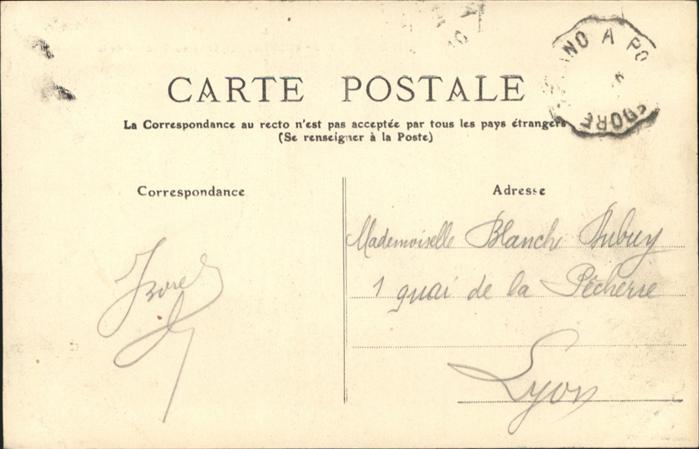 NO A PO
CARTE POSTALE
La Correspondance au recto n'est pas acceptée par tous les pays étrangers
(Se renseigner à la Poste)
Correspondance
Adresse
Mademoiselle Blanch Dubuy
1 quai de la Pêcherie
Lyon